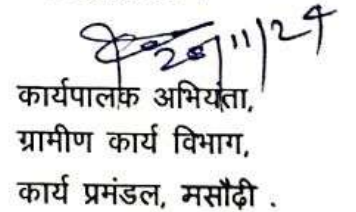 20/11/24
कार्यपालक अभियंता,
ग्रामीण कार्य विभाग,
कार्य प्रमंडल, मसौढ़ी .